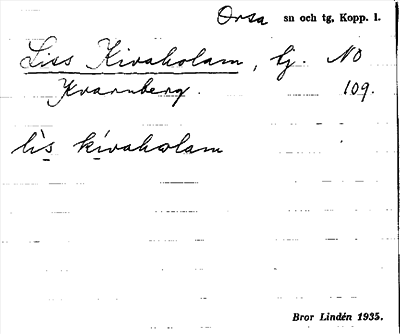 Orsa sn och tg, Kopp. l.
Liss Kivaholam, lj. NO
Kvarnberg. 109.
lìs kívaholam
Bror Lindén 1935.